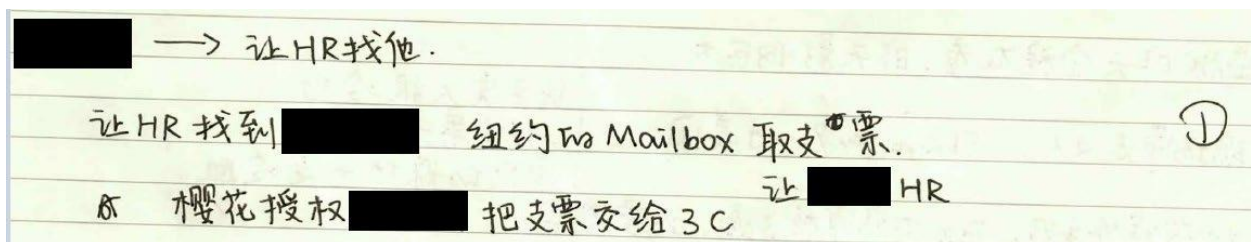 → 让HR找他.
让HR找到 纽约的Mailbox 取支票. ①
让 HR
樱花授权 把支票交给3C